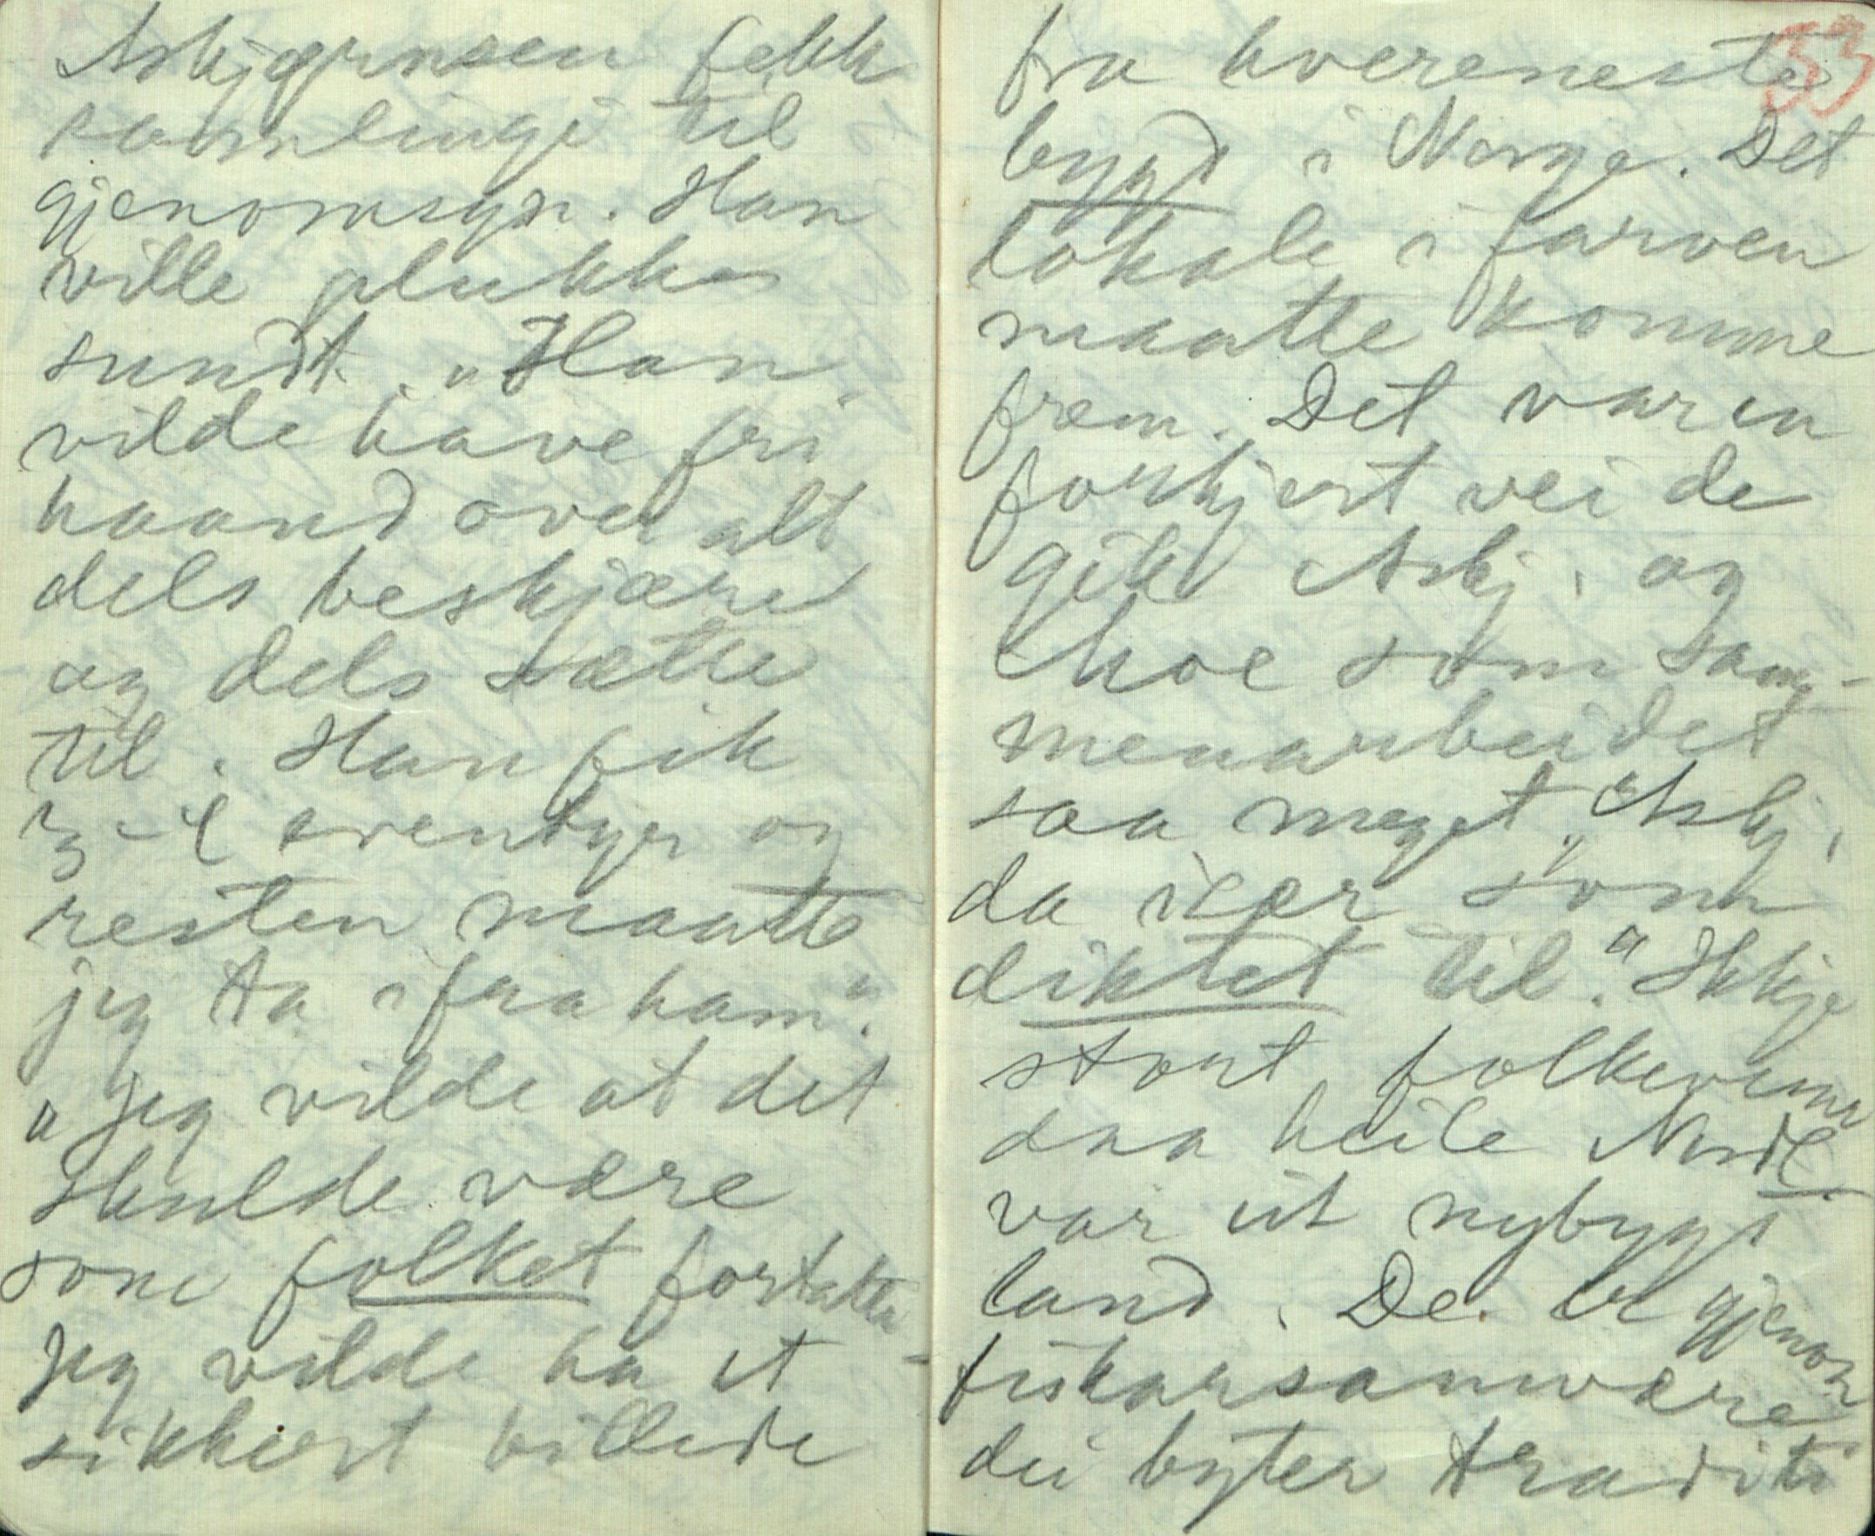 Asbjørnsen fekk
samlingi til
gjenomsyn. Han
ville plukka
sundt. „Han
vilde have fri
haand over alt
dels beskjære
og dels sætte
til. Han fik
3-4 eventyr og
resten maatte
jeg ta ifra ham".
„Jeg vilde at det
skulde være
som folket fortalte
Jeg vilde ha et
sikkert billede
53
fra hvereneste
bygd i Norge. Det
lokale i farven
maatte komme
frem. Det var en
forkjert vei de
gik Asbj. og
Moe som sam-
menarbeidet
saa meget. „Asbj.
da især som
diktet til." Ikkje
stort folkevims
daa heile Nordl.
var eit nybygt
land. De. bl gjenom
fiskarsamværet
dei byter traditi